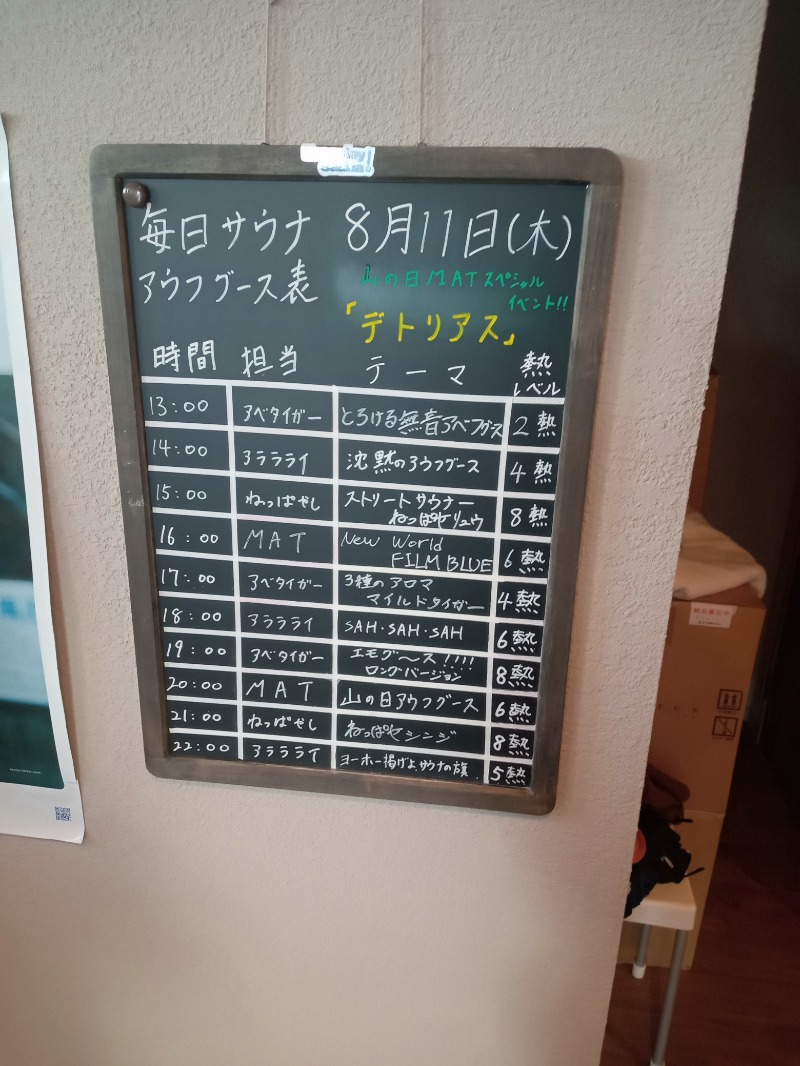 毎日サウナ 8月11日(木)
アウフグース表 山の日MATスペシャル
イベント!!
「デトリアス」
時間 担当 テーマ 熱レベル
13:00 アベタイガー とろける無音アベフグース 2熱
14:00 アラララライ 沈黙のアウフグース 4熱
15:00 ねっぱやし ストリートサウナー
ねっぱやリュウ 8熱
16:00 MAT New World
FILM BLUE 6熱
17:00 アベタイガー 3種のアロマ
マイルドタイガー 4熱
18:00 アララライ SAH・SAH・SAH 6熱
19:00 アベタイガー エモグ〜ス!!!!
ロングバージョン 8熱
20:00 MAT 山の日アウフグース 6熱
21:00 ねっぱやし ねっぱやシンジ 8熱
22:00 アララライ ヨーホー掲げよサウナの旗 5熱